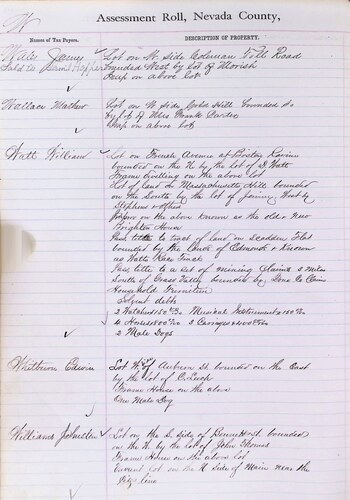 W
Assessment Roll, Nevada County,
Names of Tax Payers.
DESCRIPTION OF PROPERTY.
Wales James
Lot on W. side Coleman Toll Road
Sold to
bounded West by lot of
on above lot
Wallace Mathew
Lot on W. side Gold Hill bounded
by lot of Mrs Frank
on above lot
Watt William
Lot on French Avenue at Boston Ravine
bounded on the N by the lot of D. Watt
Frame Dwelling on the above lot
Lot of land on Massachusetts Hill bounded
on the South by the lot of
Stephens & others
on the above known as the older
House
Poss title to tract of land on Scadden Flat
bounded by the lands of Edwards & known
as Watts Race Track
Poss title to a set of mining claims 2 miles
South of Grass Valley bounded by
Household Furniture
Solvent debts
2 Watches 150 Musical Instruments 150
4 Horses 800 3 Carriages 400
2 Male Dogs
Westburn Edwin
Lot W. of Auburn St. bounded on the East
by the lot of C. Leech
Frame House on the above
One Male Dog
Williams Johnston
Lot on the S. side of bounded
on the N. by the lot of John Thomas
Frame House on the above lot
Vacant lot on the N side of Main near the
line